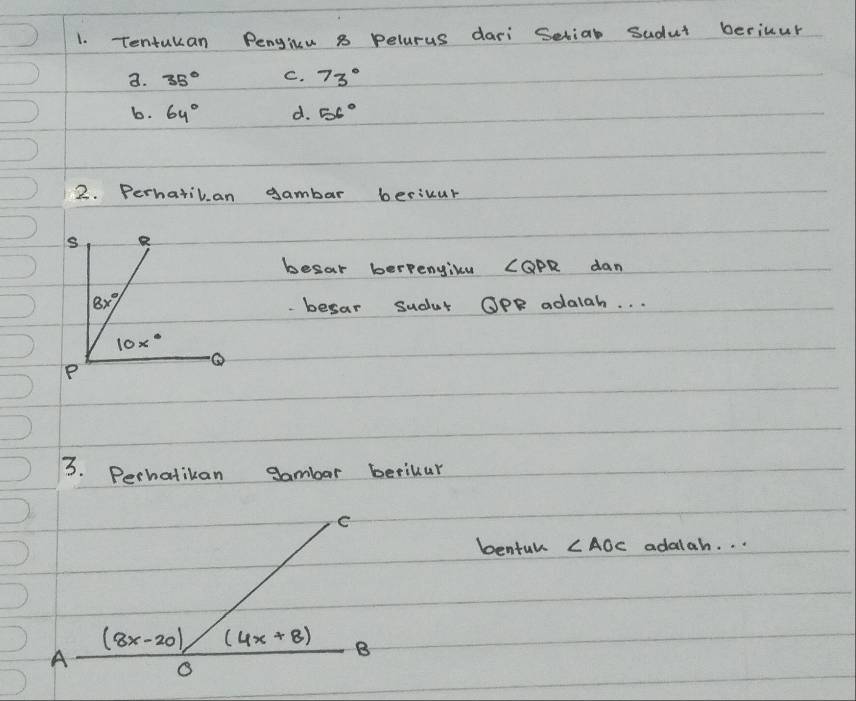 1. Tentukan Penyiku & Pelurus dari Setiap Sudut berikut
a. 35° c. 73°
b. 64° d. 56°
2. Perhatikan gambar berikut
S R
besar berpenyiku ∠QPR dan
8x°
besar sudut QPR adalah...
10x°
P Q
3. Perhatikan gambar berikut
C
bentuk ∠AOC adalah...
(8x-20) (4x+8)
A B
O